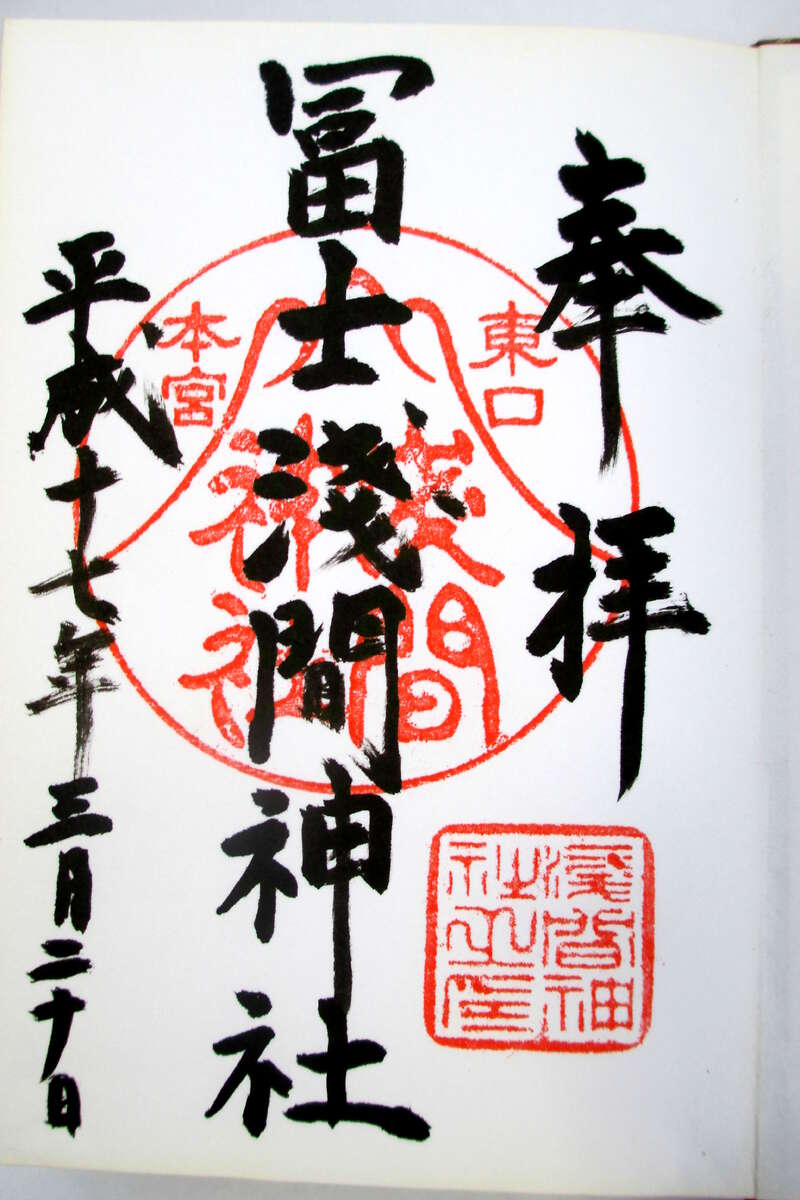 奉拝
冨士淺間神社
平成十七年三月二十日
東口
本宮
淺間
神社
淺間神
社之印